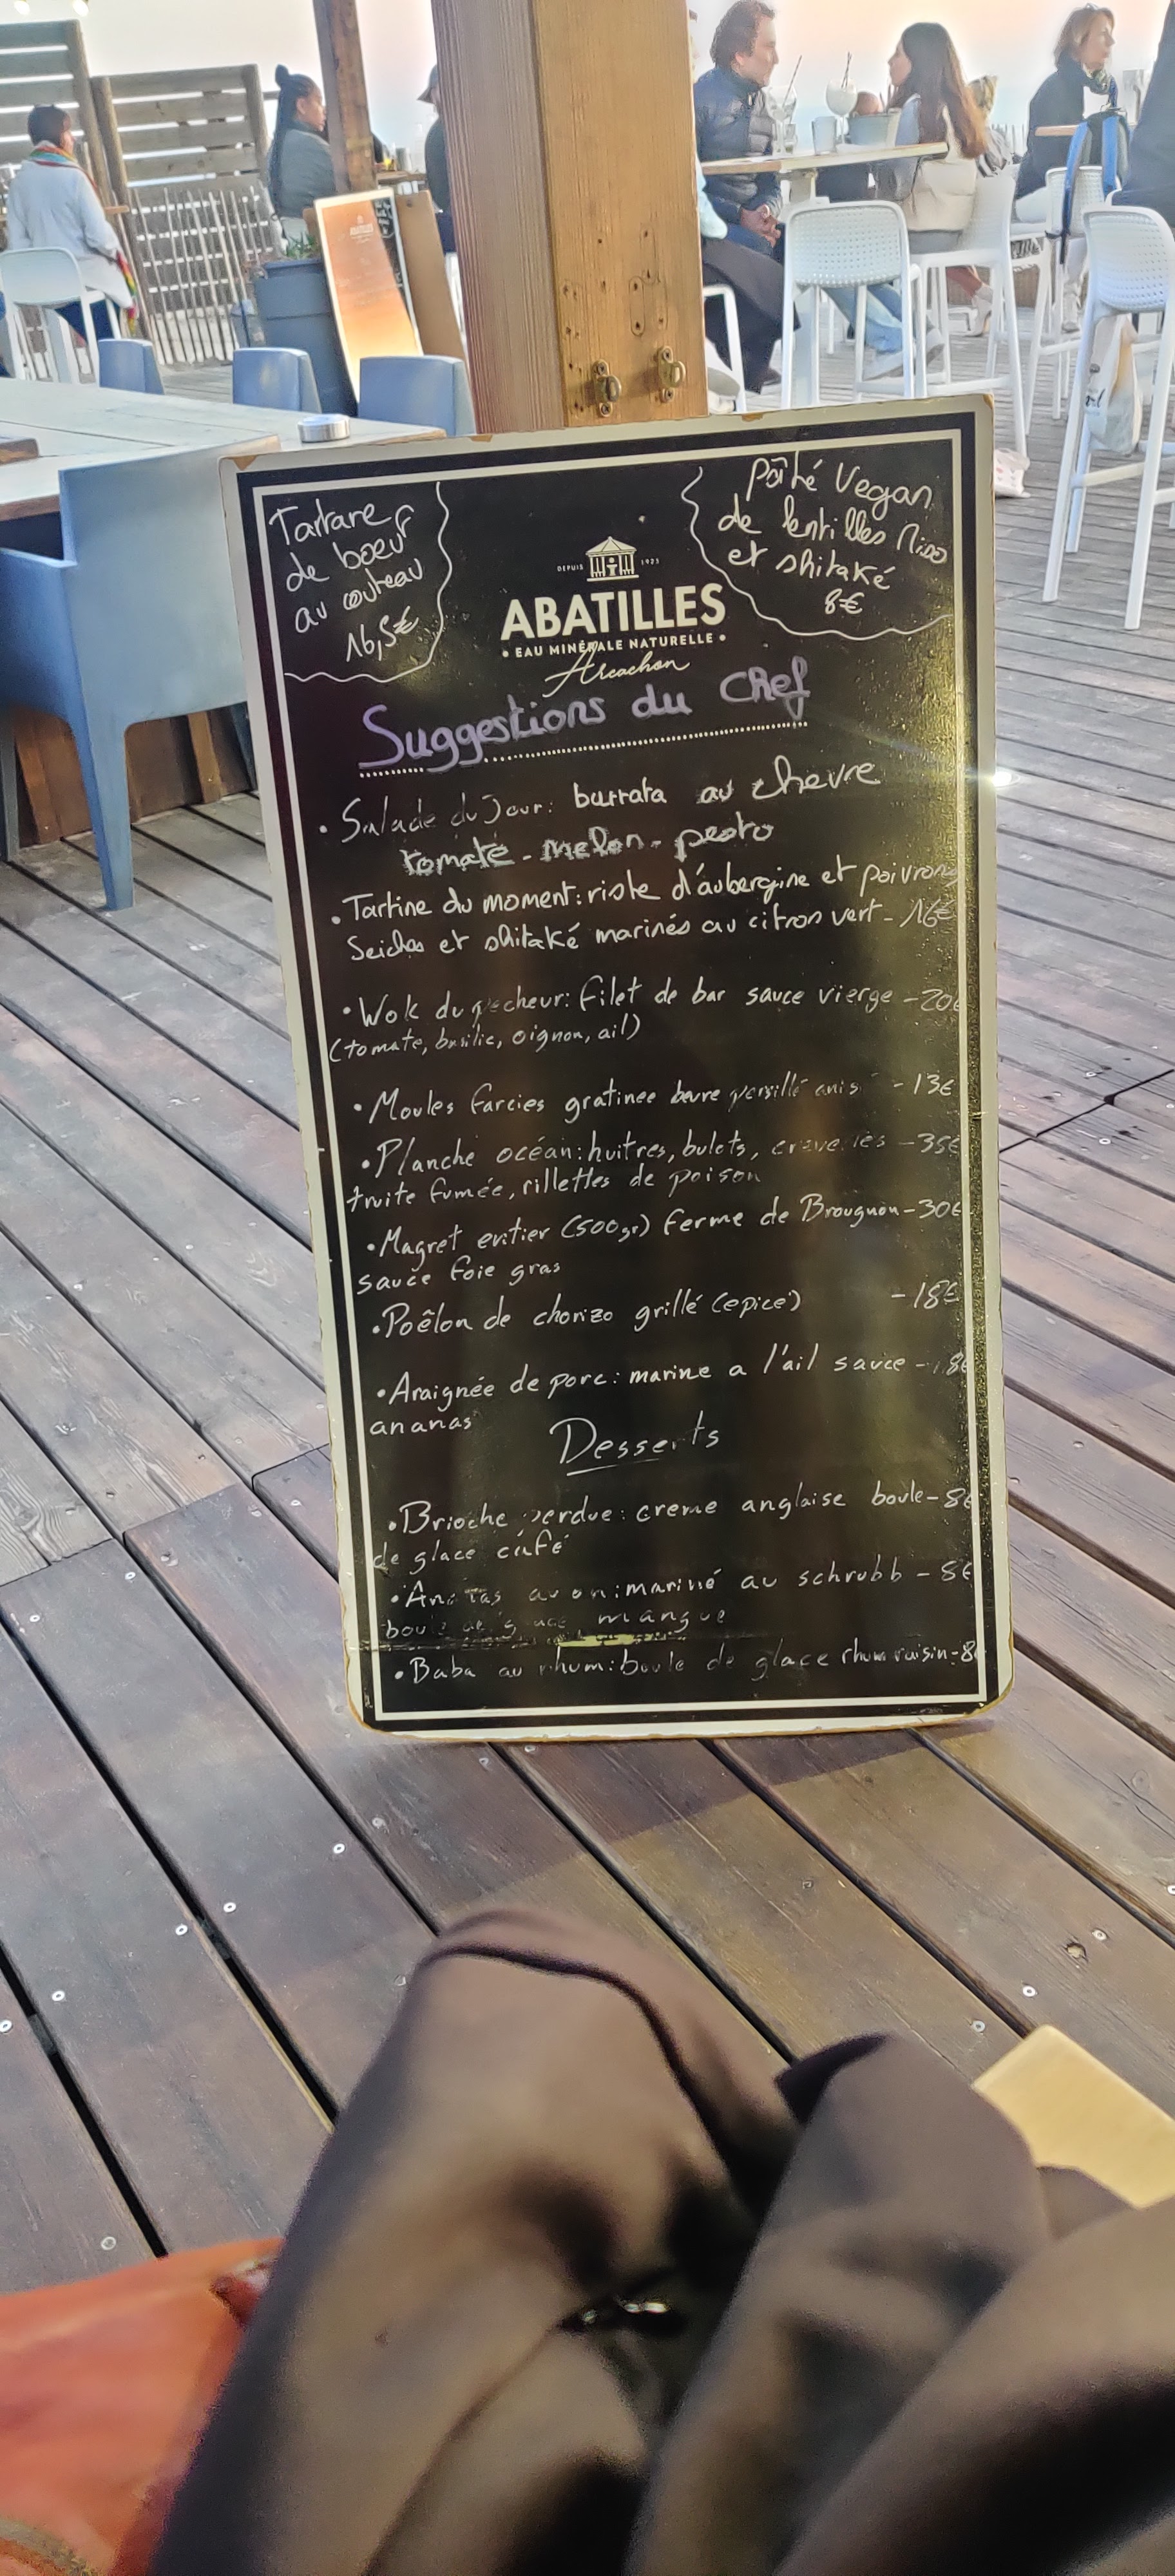 Tartare
de boeuf
au couteau
16,5€
Pâté Vegan
de lentilles Miso
et shitaké
8€
DEPUIS 1925
ABATILLES
• EAU MINÉRALE NATURELLE •
Arcachon
Suggestions du Chef
• Salade du jour: burrata au chevre
tomate - melon - pesto
• Tartine du moment: riste d'aubergine et poivrons
Seiches et shitaké marinés au citron vert - 16€
• Wok du pecheur: filet de bar sauce vierge - 20€
(tomate, basilic, oignon, ail)
• Moules farcies gratinee beure persillé anis - 13€
• Planche océan: huitres, bulots, crevettes - 35€
truite fumée, rillettes de poison
• Magret entier (500gr) ferme de Brouguon - 30€
sauce foie gras
• Poêlon de chorizo grillé (epicé) - 18€
• Araignée de porc: marine a l'ail sauce - 18€
ananas
Desserts
• Brioche perdue: creme anglaise boule - 8€
de glace café
• Ananas mariné au schrubb - 8€
boule de glace mangue
• Baba au rhum: boule de glace rhum raisin - 8€
ABATILLES